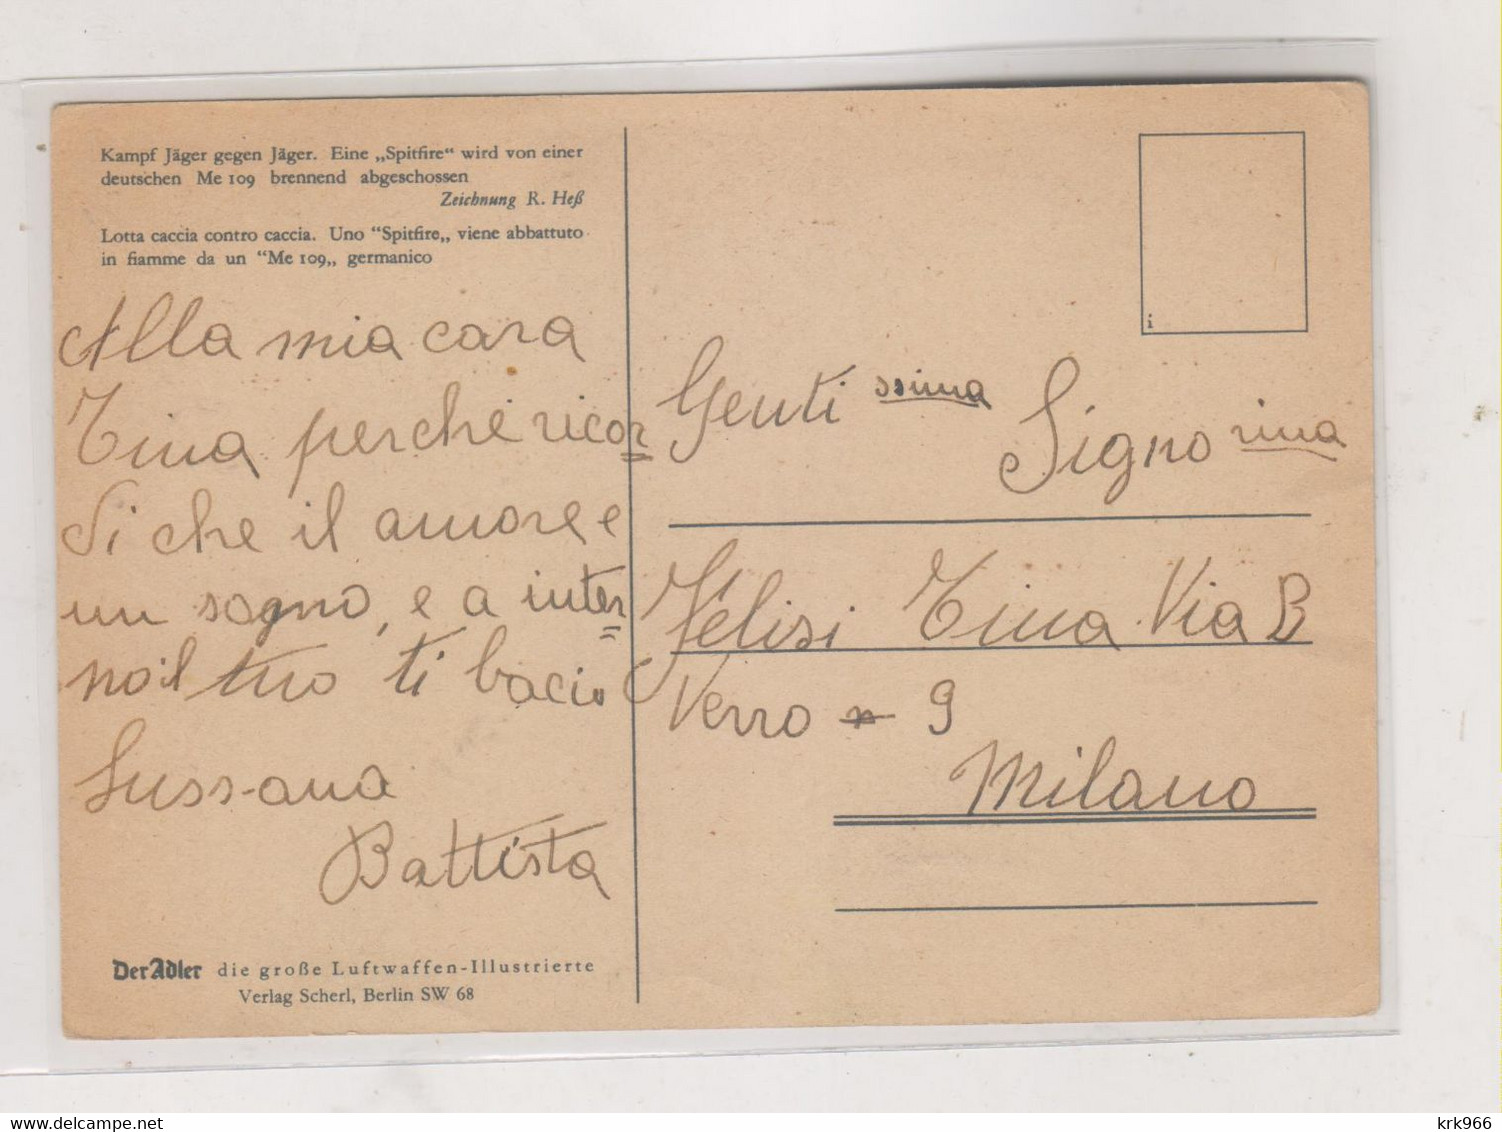 Kampf Jäger gegen Jäger. Eine „Spitfire“ wird von einer
deutschen Me 109 brennend abgeschossen
Zeichnung R. Heß
Lotta caccia contro caccia. Uno "Spitfire„ viene abbattuto
in fiamme da un "Me 109„ germanico
Alla mia cara
Tina perche ricor
di che il amore e
un sogno, e a inter
no il tuo ti bacio
Sussana
Battista
Der Adler die große Luftwaffen-Illustrierte
Verlag Scherl, Berlin SW 68
i
Gentissima
Signorina
Felisi Tina Via B
Verro n 9
Milano
krk966